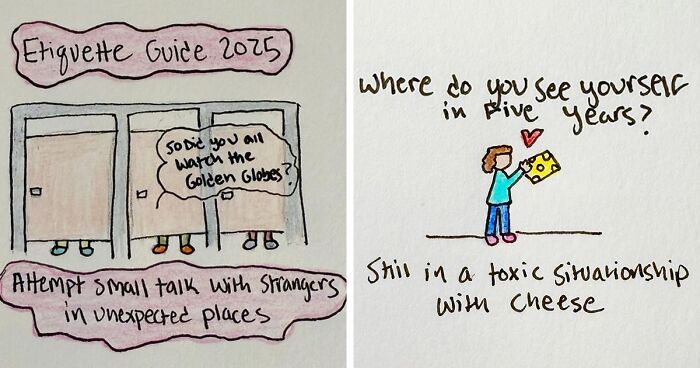 Etiquette Guide 2025
So Did you all
watch the
Golden Globes?
Attempt small talk with strangers
in unexpected places
Where do you see yourself
in Five years?
Still in a toxic situationship
with cheese